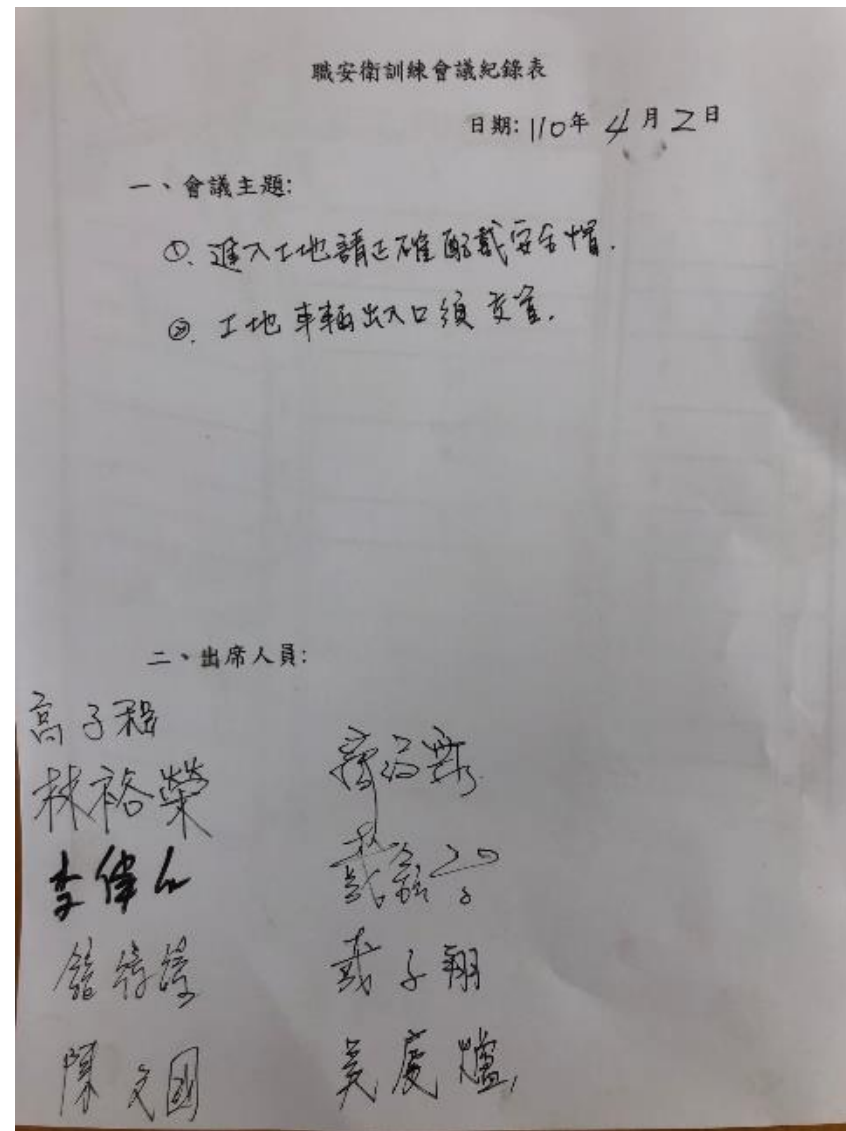 職安衛訓練會議紀錄表
日期: 110年 4月 2日
一、會議主題:
①. 進入工地請正確配戴安全帽.
②. 工地車輛出入口須交管.
二、出席人員:
高子程
林裕榮
李偉仁
陳文國
戴子翔
吳慶爐